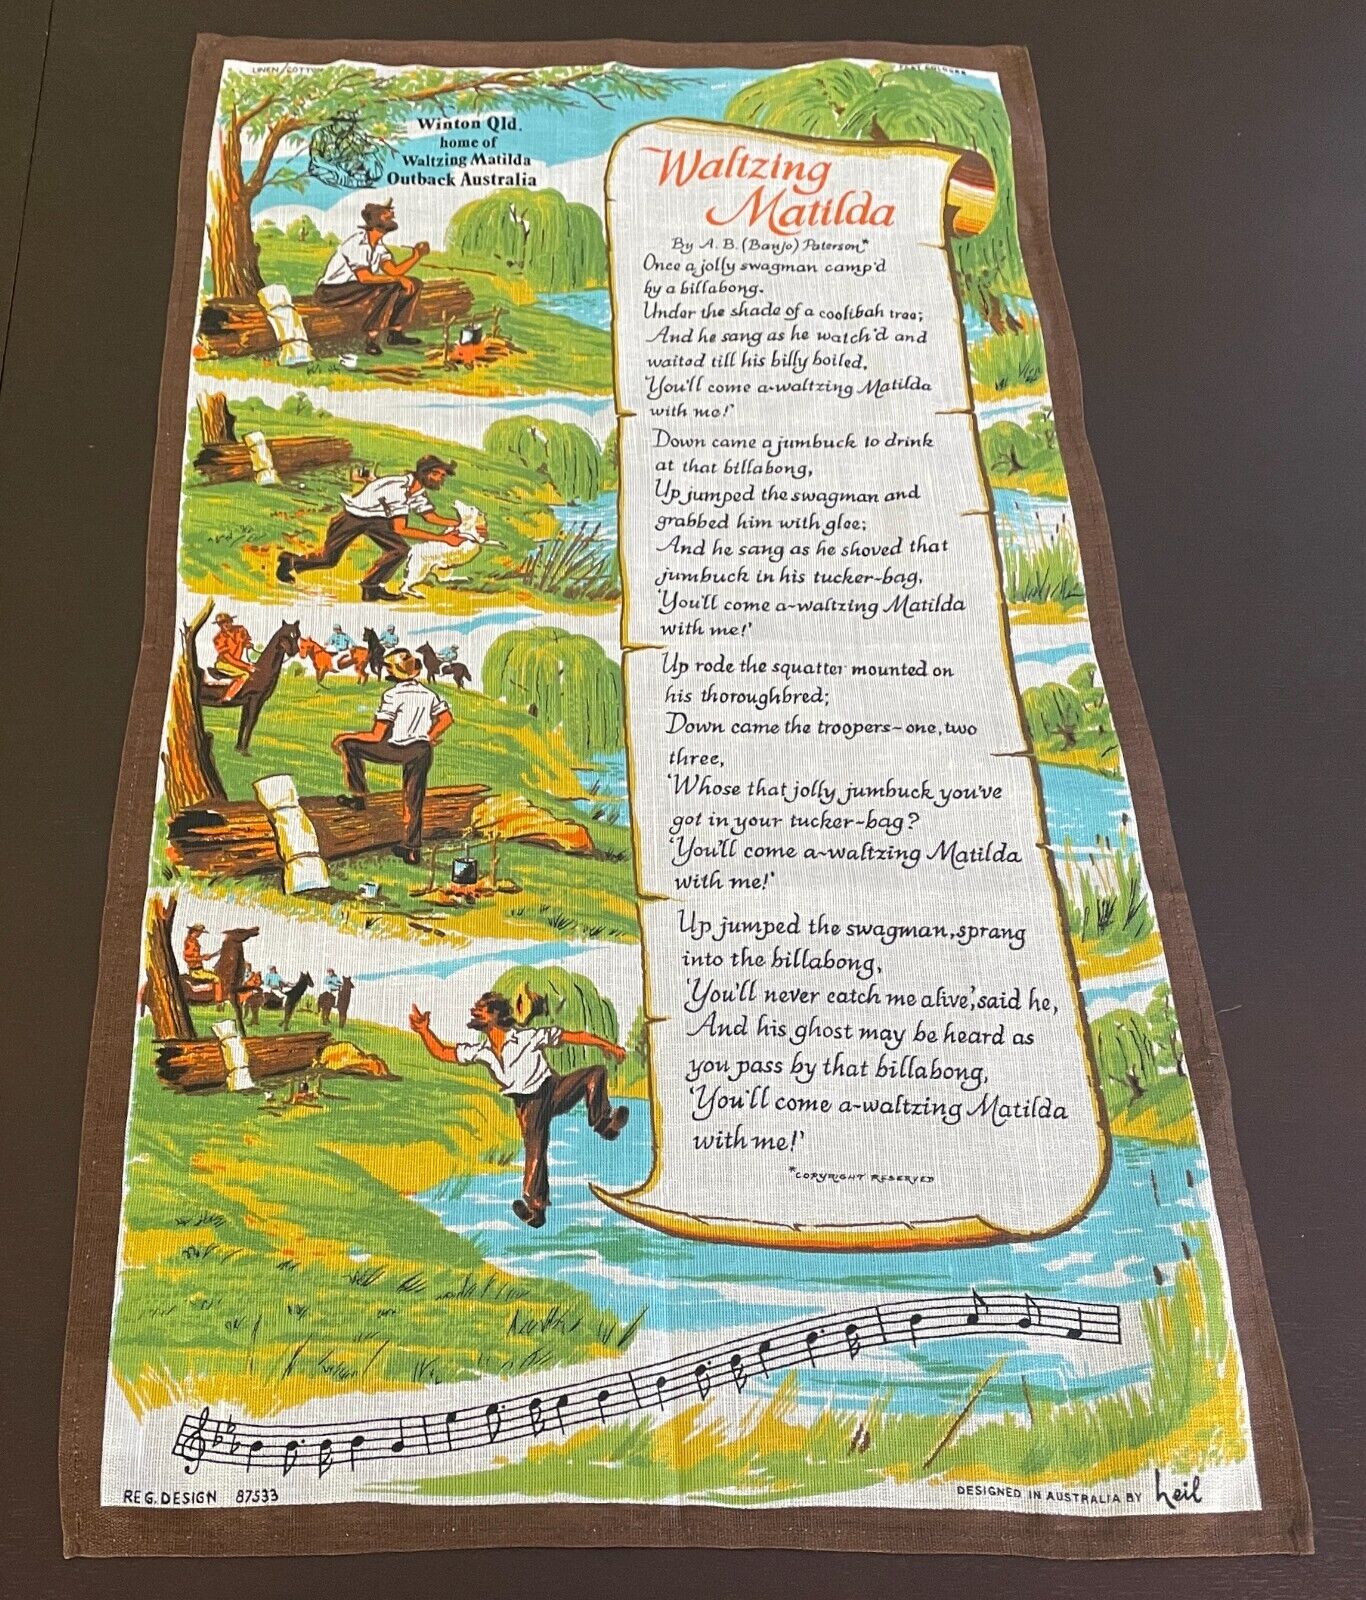 LINEN/COTTON
Winton Qld.
home of
Waltzing Matilda
Outback Australia
Waltzing
Matilda
By A. B. (Banjo) Paterson*
Once a jolly swagman camp'd
by a billabong.
Under the shade of a coolibah tree;
And he sang as he watch'd and
waited till his billy boiled,
'You'll come a-waltzing Matilda
with me!'
Down came a jumbuck to drink
at that billabong,
Up jumped the swagman and
grabbed him with glee;
And he sang as he shoved that
jumbuck in his tucker-bag,
'You'll come a-waltzing Matilda
with me!'
Up rode the squatter mounted on
his thoroughbred;
Down came the troopers-one, two
three,
'Whose that jolly jumbuck you've
got in your tucker-bag?
'You'll come a-waltzing Matilda
with me!'
Up jumped the swagman, sprang
into the billabong,
'You'll never catch me alive', said he,
And his ghost may be heard as
you pass by that billabong,
'You'll come a-waltzing Matilda
with me!'
*COPYRIGHT RESERVED
REG. DESIGN 87533
DESIGNED IN AUSTRALIA BY heil